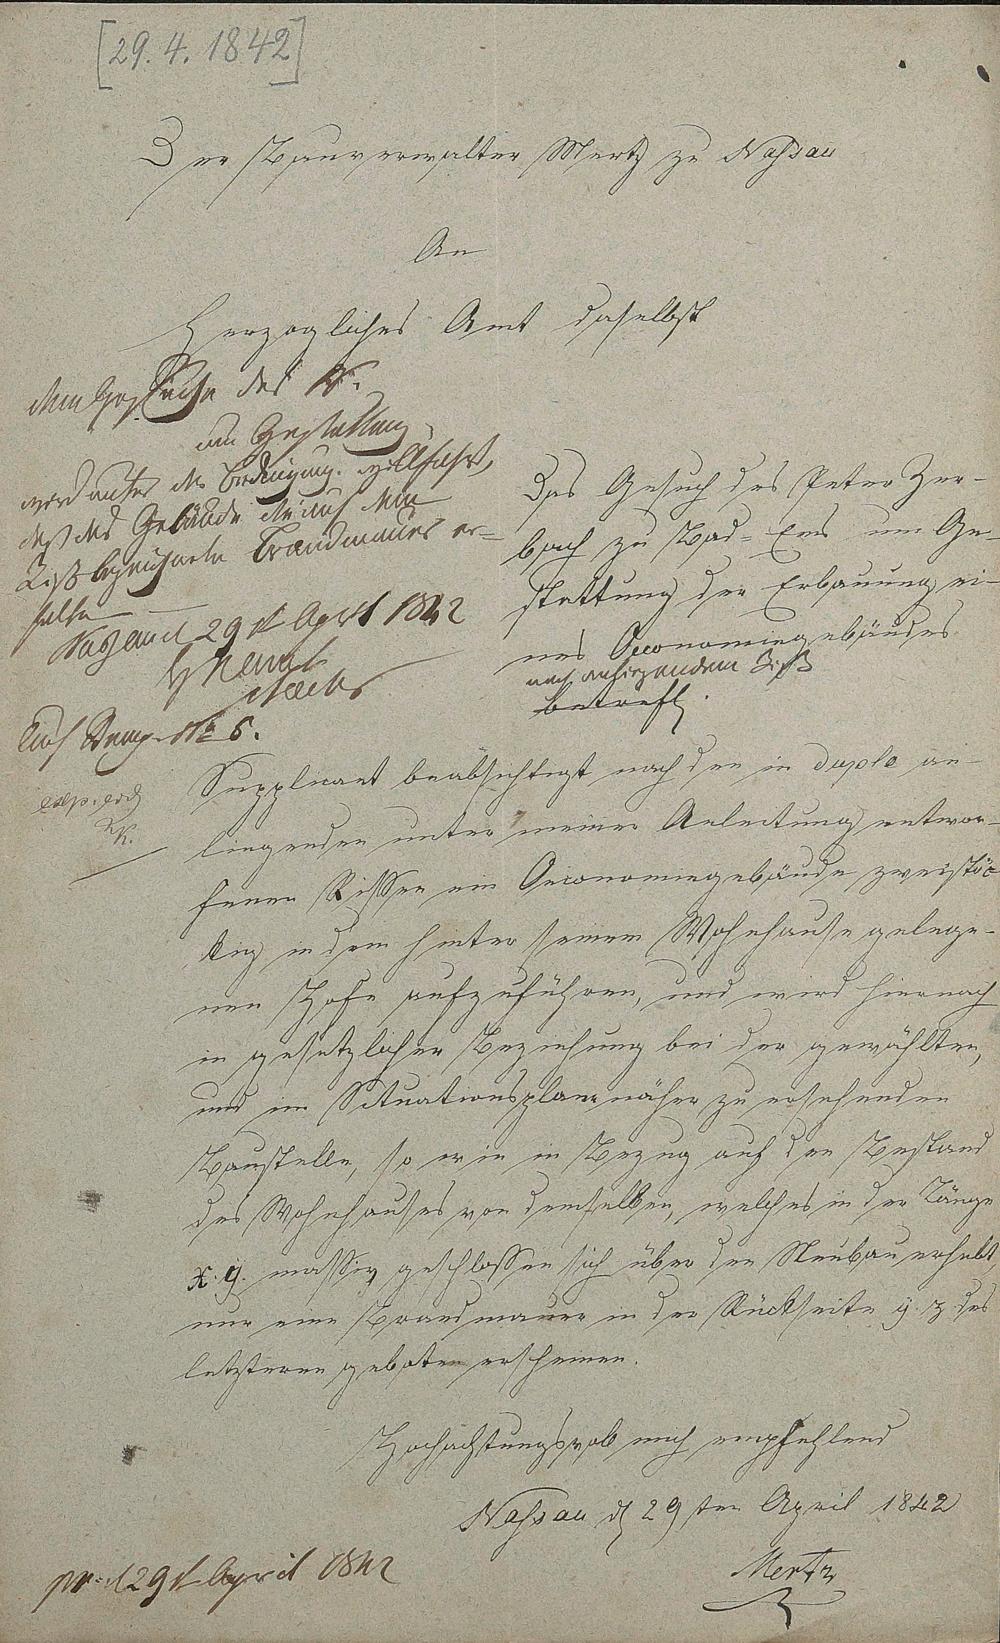 [29.4.1842]
Der Bauverwalter Mertz zu Nassau
An
Herzogliches Amt daselbst
dem Gesuche des
um Gestattung
wird unter der Bedingung willfahrt,
daß das Gebäude die auf dem
Riß bezeichnete Brandmauer er-
halte
Nassau d 29t April 1842
Auf Stemp. No 6.
Das Gesuch des Peter Zer-
bach zu Bad-Ems um Ge-
stattung der Erbauung ei-
nes Oeconomiegebäudes
nach anliegendem Riß
betreff.
Supplicant beabsichtigt nach den in duplo an-
liegenden unter meiner Anleitung entwor-
fenen Rissen ein Oeconomiegebäude zweistöc-
kig in dem hinter seinem Wohnhause gelege-
nen Hofe aufzuführen, und wird hiernach
in gesetzlicher Beziehung bei der gewählten,
und im Situationsplane näher zu ersehenden
Baustelle, so wie in Bezug auf den Bestand
des Wohnhauses von demselben, welches in der Länge
x.y. massiv geschlossen sich über den Neubau erhebt,
nur eine Brandmauer in der Rückseite y.z des
letzteren geboten erscheinen.
Hochachtungsvoll mich empfehlend
Nassau d 29ten April 1842
Mertz
pr. d 29t April 1842